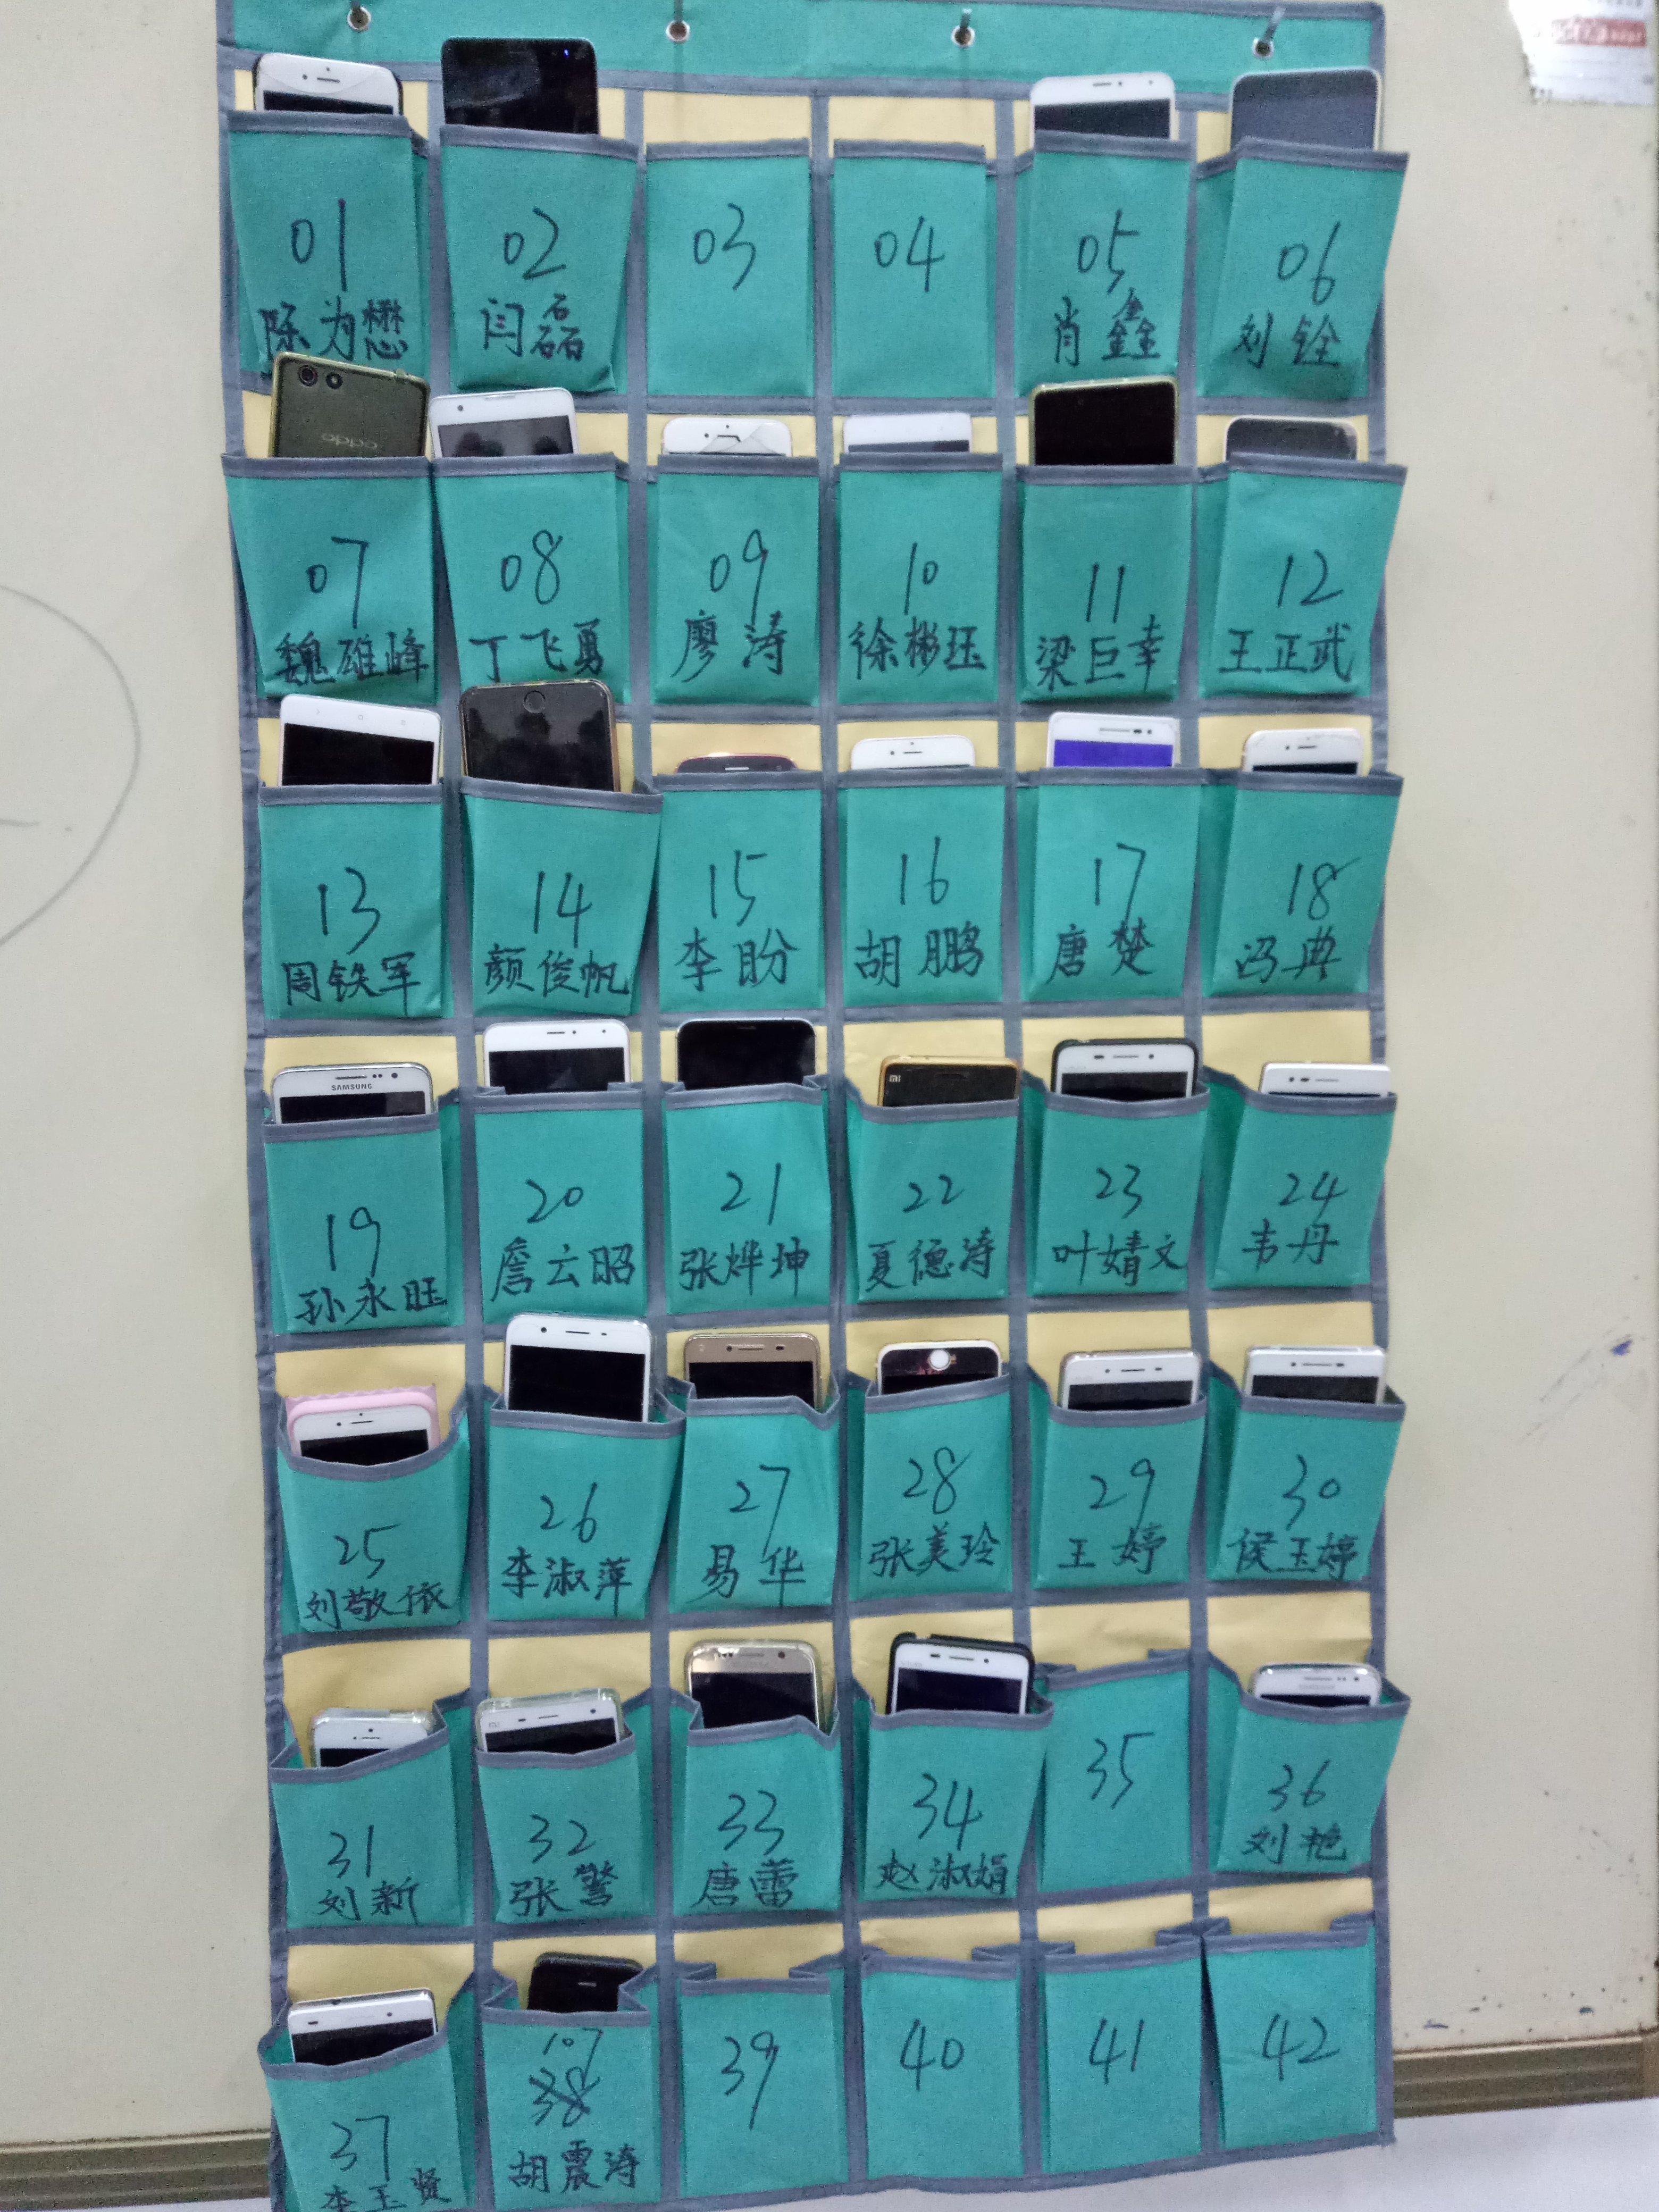 01
陈为懋
02
闫磊
03
04
05
肖鑫
06
刘铨
oppo
07
魏雄峰
08
丁飞勇
09
廖涛
10
徐彬珏
11
梁巨幸
12
王正武
13
周铁军
14
颜俊帆
15
李盼
16
胡鹏
17
唐楚
18
冯典
SAMSUNG
19
孙永旺
20
詹云昭
21
张烨坤
mi
22
夏德涛
23
叶婧文
24
韦丹
25
刘敬依
26
李淑萍
27
易华
28
张美玲
29
王婷
30
侯玉婷
31
刘新
mi
32
张警
33
唐蕾
34
赵淑娟
35
SAMSUNG
36
刘艳
37
李玉贤
107
38
胡震涛
39
40
41
42